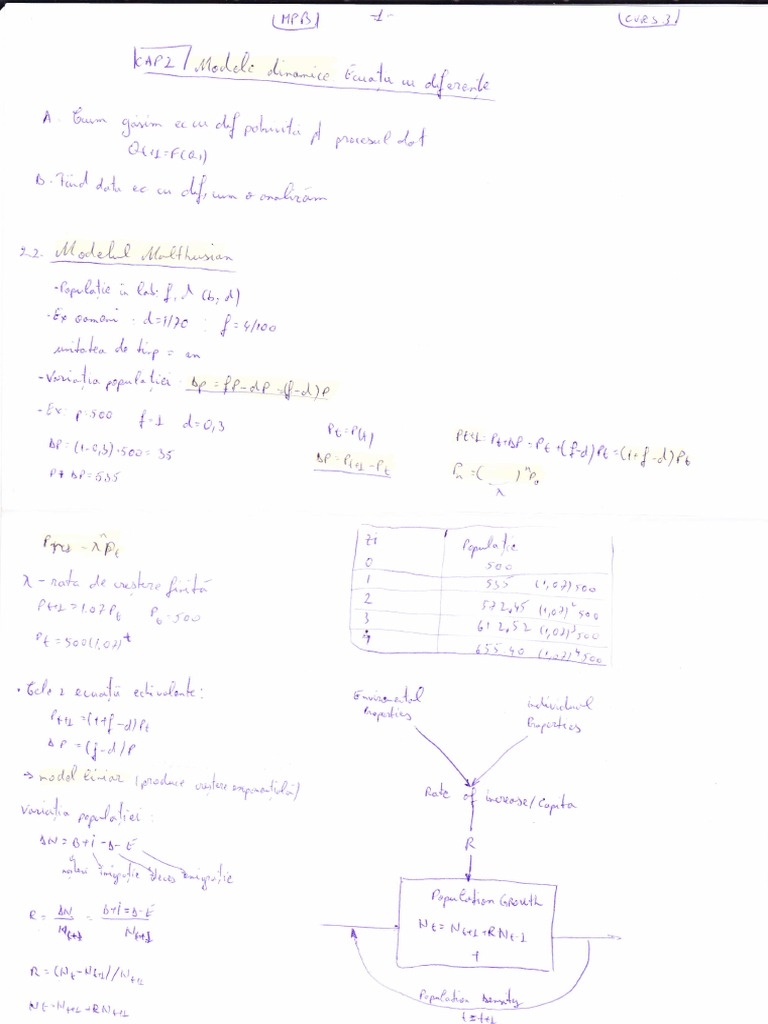 MPB
-1-
CURS 3
CAP2 Modele dinamice Ecuații cu diferențe
A. Cum găsim ec cu dif potrivită pt procesul dat
Qt+1=F(Qt)
B. Fiind data ec cu dif, cum o analizăm
2.2. Modelul Malthusian
-Populație in lab. f, d (b, d)
-Ex oameni : d=1/70 ; f=4/100
unitatea de timp = an
-Variația populației ΔP=fP-dP=(f-d)P
-Ex: p=500 f=1 d=0,3
ΔP=(1-0,3)·500=35
P+ΔP=535
Pt=P(t)
ΔP=Pt+1-Pt
Pt+1=Pt+ΔP=Pt+(f-d)Pt=(1+f-d)Pt
Pn=( )ⁿP0
λ
λ - rata de creștere finită
Pt+1=1,07Pt P0=500
Pt=500(1,07)^t
Zi Populație
0 500
1 535 (1,07)500
2 572,45 (1,07)²500
3 612,52 (1,07)³500
4 655.40 (1,07)⁴500
• Cele 2 ecuații echivalente:
Pt+1=(1+f-d)Pt
ΔP=(f-d)P
→ model liniar (produce creștere exponențială)
variația populației:
ΔN=B+i-D-E
nașteri imigrație deces emigrație
R=ΔN/Nt+1=B+i=D-E/Nt+1
R=(Nt-Nt+1)/Nt+1
Nt=Nt+1+RNt+1
Enviromental Properties
Individual Properties
Rate of increase/Capita
R
Population Growth
Nt=Nt+1+RNt-1
+
Population Density
t=t+1